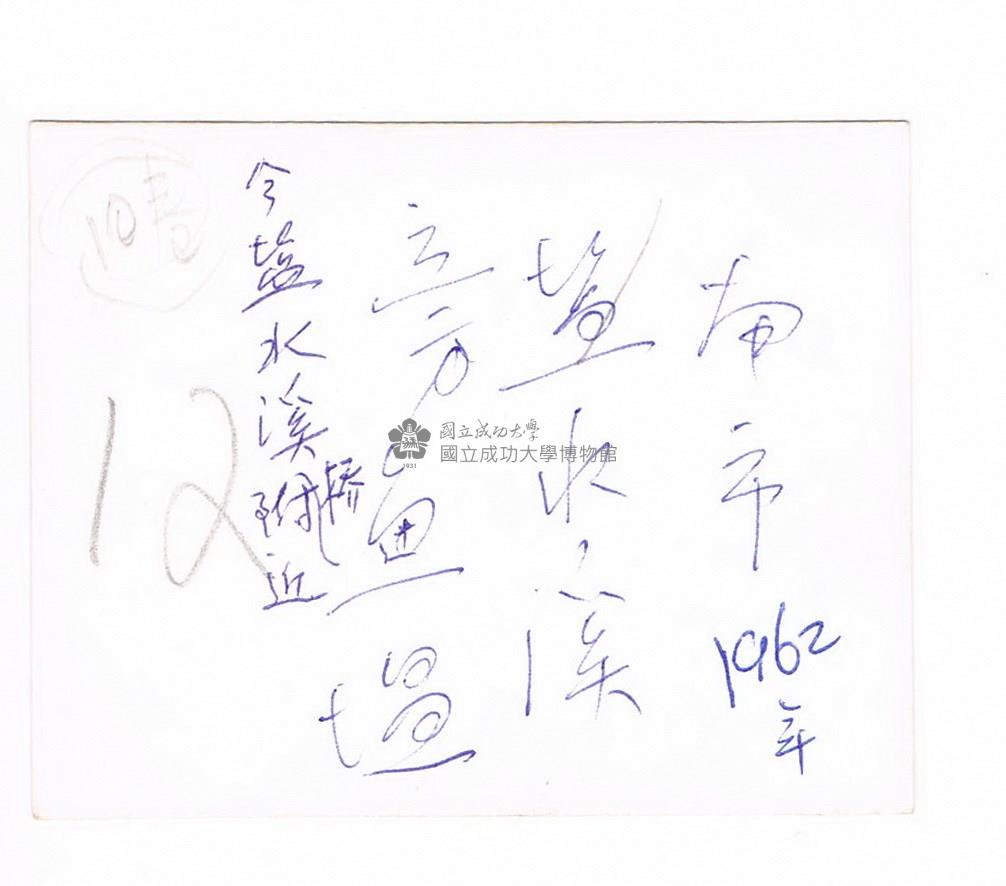 南市 1962年
塩水溪
立方魚塭
今塩水溪橋附近
12
國立成功大學
國立成功大學博物館
1931